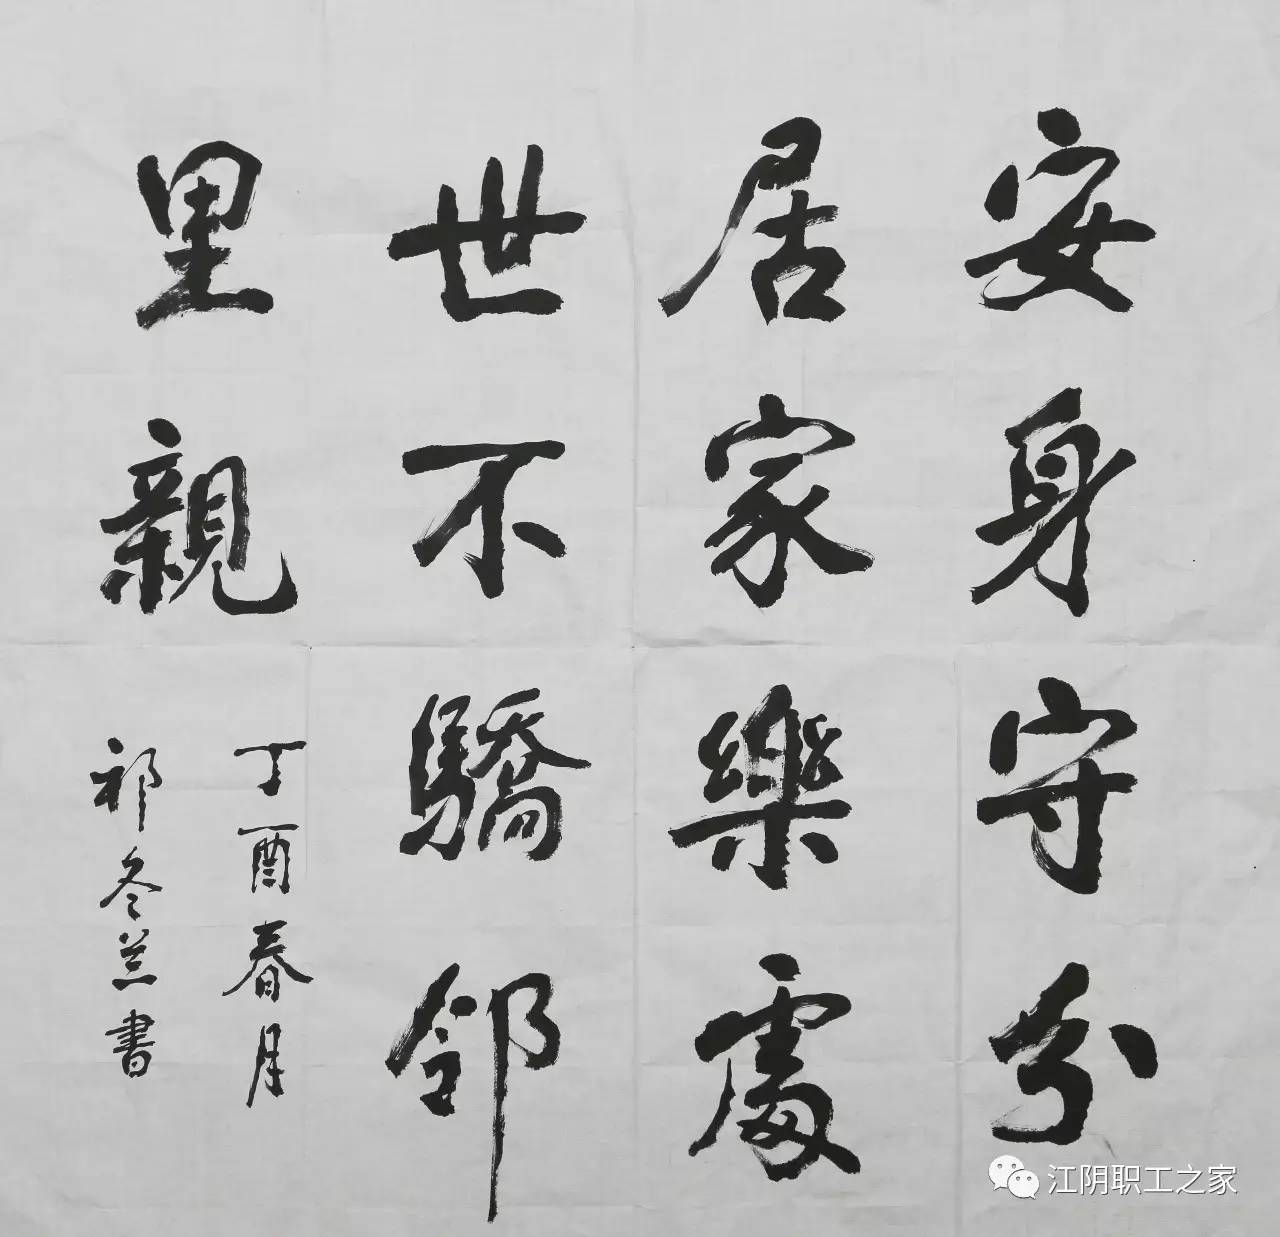 安身守分
居家樂處
世不驕邻
里親
丁酉春月
祁冬兰書
江阴职工之家